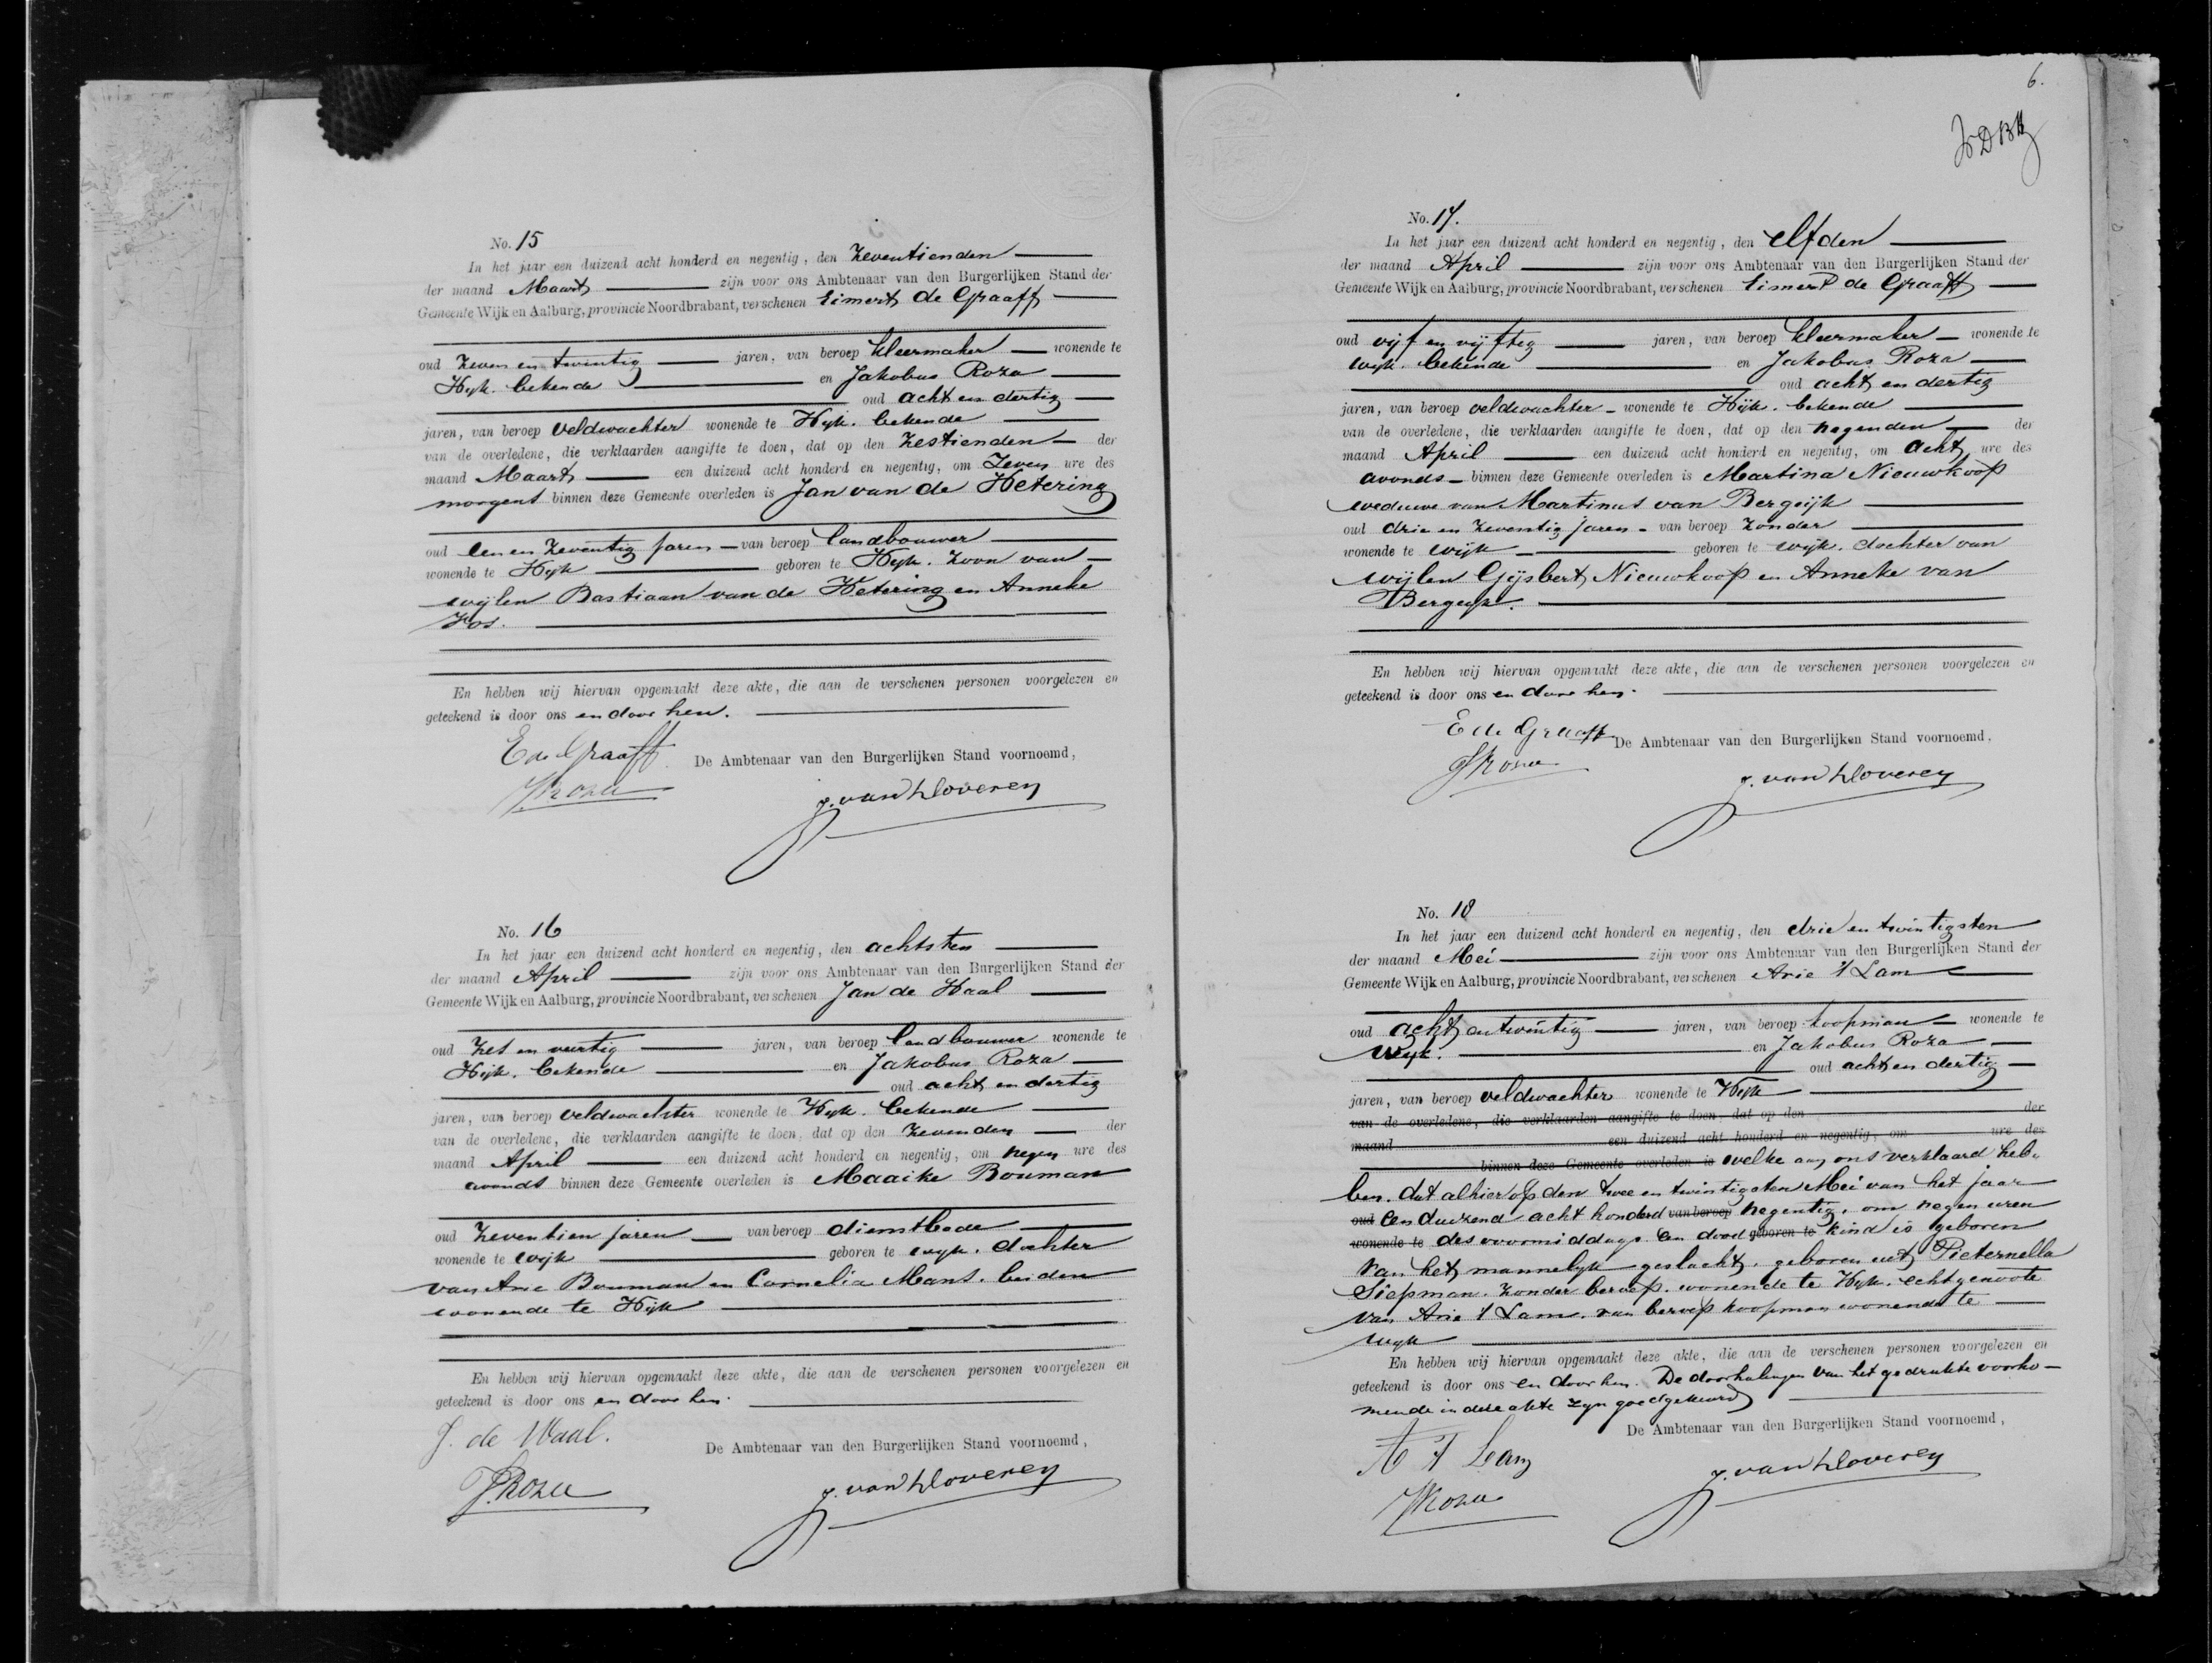 No. 15
In het jaar een duizend acht honderd en negentig, den Zeventienden
der maand Maart zijn voor ons Ambtenaar van den Burgerlijken Stand der
Gemeente Wijk en Aalburg, provincie Noordbrabant, verschenen Eimert de Graaff
oud Zeven en twintig jaren, van beroep kleermaker wonende te
Wijk. bekende en Jakobus Roza
oud acht en dertig
jaren, van beroep veldwachter wonende te Wijk. bekende
van de overledene, die verklaarden aangifte te doen, dat op den Zestienden der
maand Maart een duizend acht honderd en negentig, om Zeven ure des
morgens binnen deze Gemeente overleden is Jan van de Wetering
oud Een en Zeventig jaren van beroep landbouwer
wonende te Wijk geboren te Wijk. Zoon van
wijlen Bastiaan van de Wetering en Anneke
Vos.
En hebben wij hiervan opgemaakt deze akte, die aan de verschenen personen voorgelezen en
geteekend is door ons en door hen.
E de Graaff
De Ambtenaar van den Burgerlijken Stand voornoemd,
J Roza
J. van Kloverey
No. 16
In het jaar een duizend acht honderd en negentig, den achtsten
der maand April zijn voor ons Ambtenaar van den Burgerlijken Stand der
Gemeente Wijk en Aalburg, provincie Noordbrabant, verschenen Jan de Waal
oud Zes en veertig jaren, van beroep landbouwer wonende te
Wijk. bekende en Jakobus Roza
oud acht en dertig
jaren, van beroep veldwachter wonende te Wijk. bekende
van de overledene, die verklaarden aangifte te doen, dat op den Zevenden der
maand April een duizend acht honderd en negentig, om negen ure des
avonds binnen deze Gemeente overleden is Maaike Bouman
oud Zeventien jaren van beroep dienstbode
wonende te wijk geboren te wijk. dochter
van Arie Bouman en Cornelia Mans. beiden
wonende te Wijk
En hebben wij hiervan opgemaakt deze akte, die aan de verschenen personen voorgelezen en
geteekend is door ons en door hen.
J. de Waal.
De Ambtenaar van den Burgerlijken Stand voornoemd,
J. Roza
J. van Kloverey
6.
No. 17.
In het jaar een duizend acht honderd en negentig, den elfden
der maand April zijn voor ons Ambtenaar van den Burgerlijken Stand der
Gemeente Wijk en Aalburg, provincie Noordbrabant, verschenen Eimert de Graaff
oud vijf en vijftig jaren, van beroep kleermaker wonende te
wijk. bekende en Jakobus Roza
oud acht en dertig
jaren, van beroep veldwachter wonende te Wijk. bekende
van de overledene, die verklaarden aangifte te doen, dat op den negenden der
maand April een duizend acht honderd en negentig, om acht ure des
avonds binnen deze Gemeente overleden is Martina Nieuwkoop
weduwe van Martinus van Bergeijk
oud drie en Zeventig jaren van beroep Zonder
wonende te wijk geboren te wijk. dochter van
wijlen Gijsbert Nieuwkoop en Anneke van
Bergeijk.
En hebben wij hiervan opgemaakt deze akte, die aan de verschenen personen voorgelezen en
geteekend is door ons en door hen.
E de Graaff
De Ambtenaar van den Burgerlijken Stand voornoemd,
J Roza
J. van Kloverey
No. 18
In het jaar een duizend acht honderd en negentig, den drie en twintigsten
der maand Mei zijn voor ons Ambtenaar van den Burgerlijken Stand der
Gemeente Wijk en Aalburg, provincie Noordbrabant, verschenen Arie 't Lam
oud acht en twintig jaren, van beroep koopman wonende te
Wijk. en Jakobus Roza
oud acht en dertig
jaren, van beroep veldwachter wonende te Wijk
van de overledene, die verklaarden aangifte te doen, dat op den der
maand een duizend acht honderd en negentig, om ure des
binnen deze Gemeente overleden is welke aan ons verklaard heb-
ben. dat alhier op den twee en twintigsten Mei van het jaar
oud een duizend acht honderd van beroep negentig, om negen uren
wonende te des voormiddags een dood geboren te kind is geboren
van het mannelijk geslacht. geboren uit Pieternella
Siepman. Zonder beroep. wonende te Wijk. echtgenoote
van Arie 't Lam. van beroep koopman wonende te
wijk
En hebben wij hiervan opgemaakt deze akte, die aan de verschenen personen voorgelezen en
geteekend is door ons en door hen. De doorhalingen van het gedrukte voorko-
mende in deze akte zijn goedgekeurd
De Ambtenaar van den Burgerlijken Stand voornoemd,
A 't Lam
J Roza
J. van Kloverey